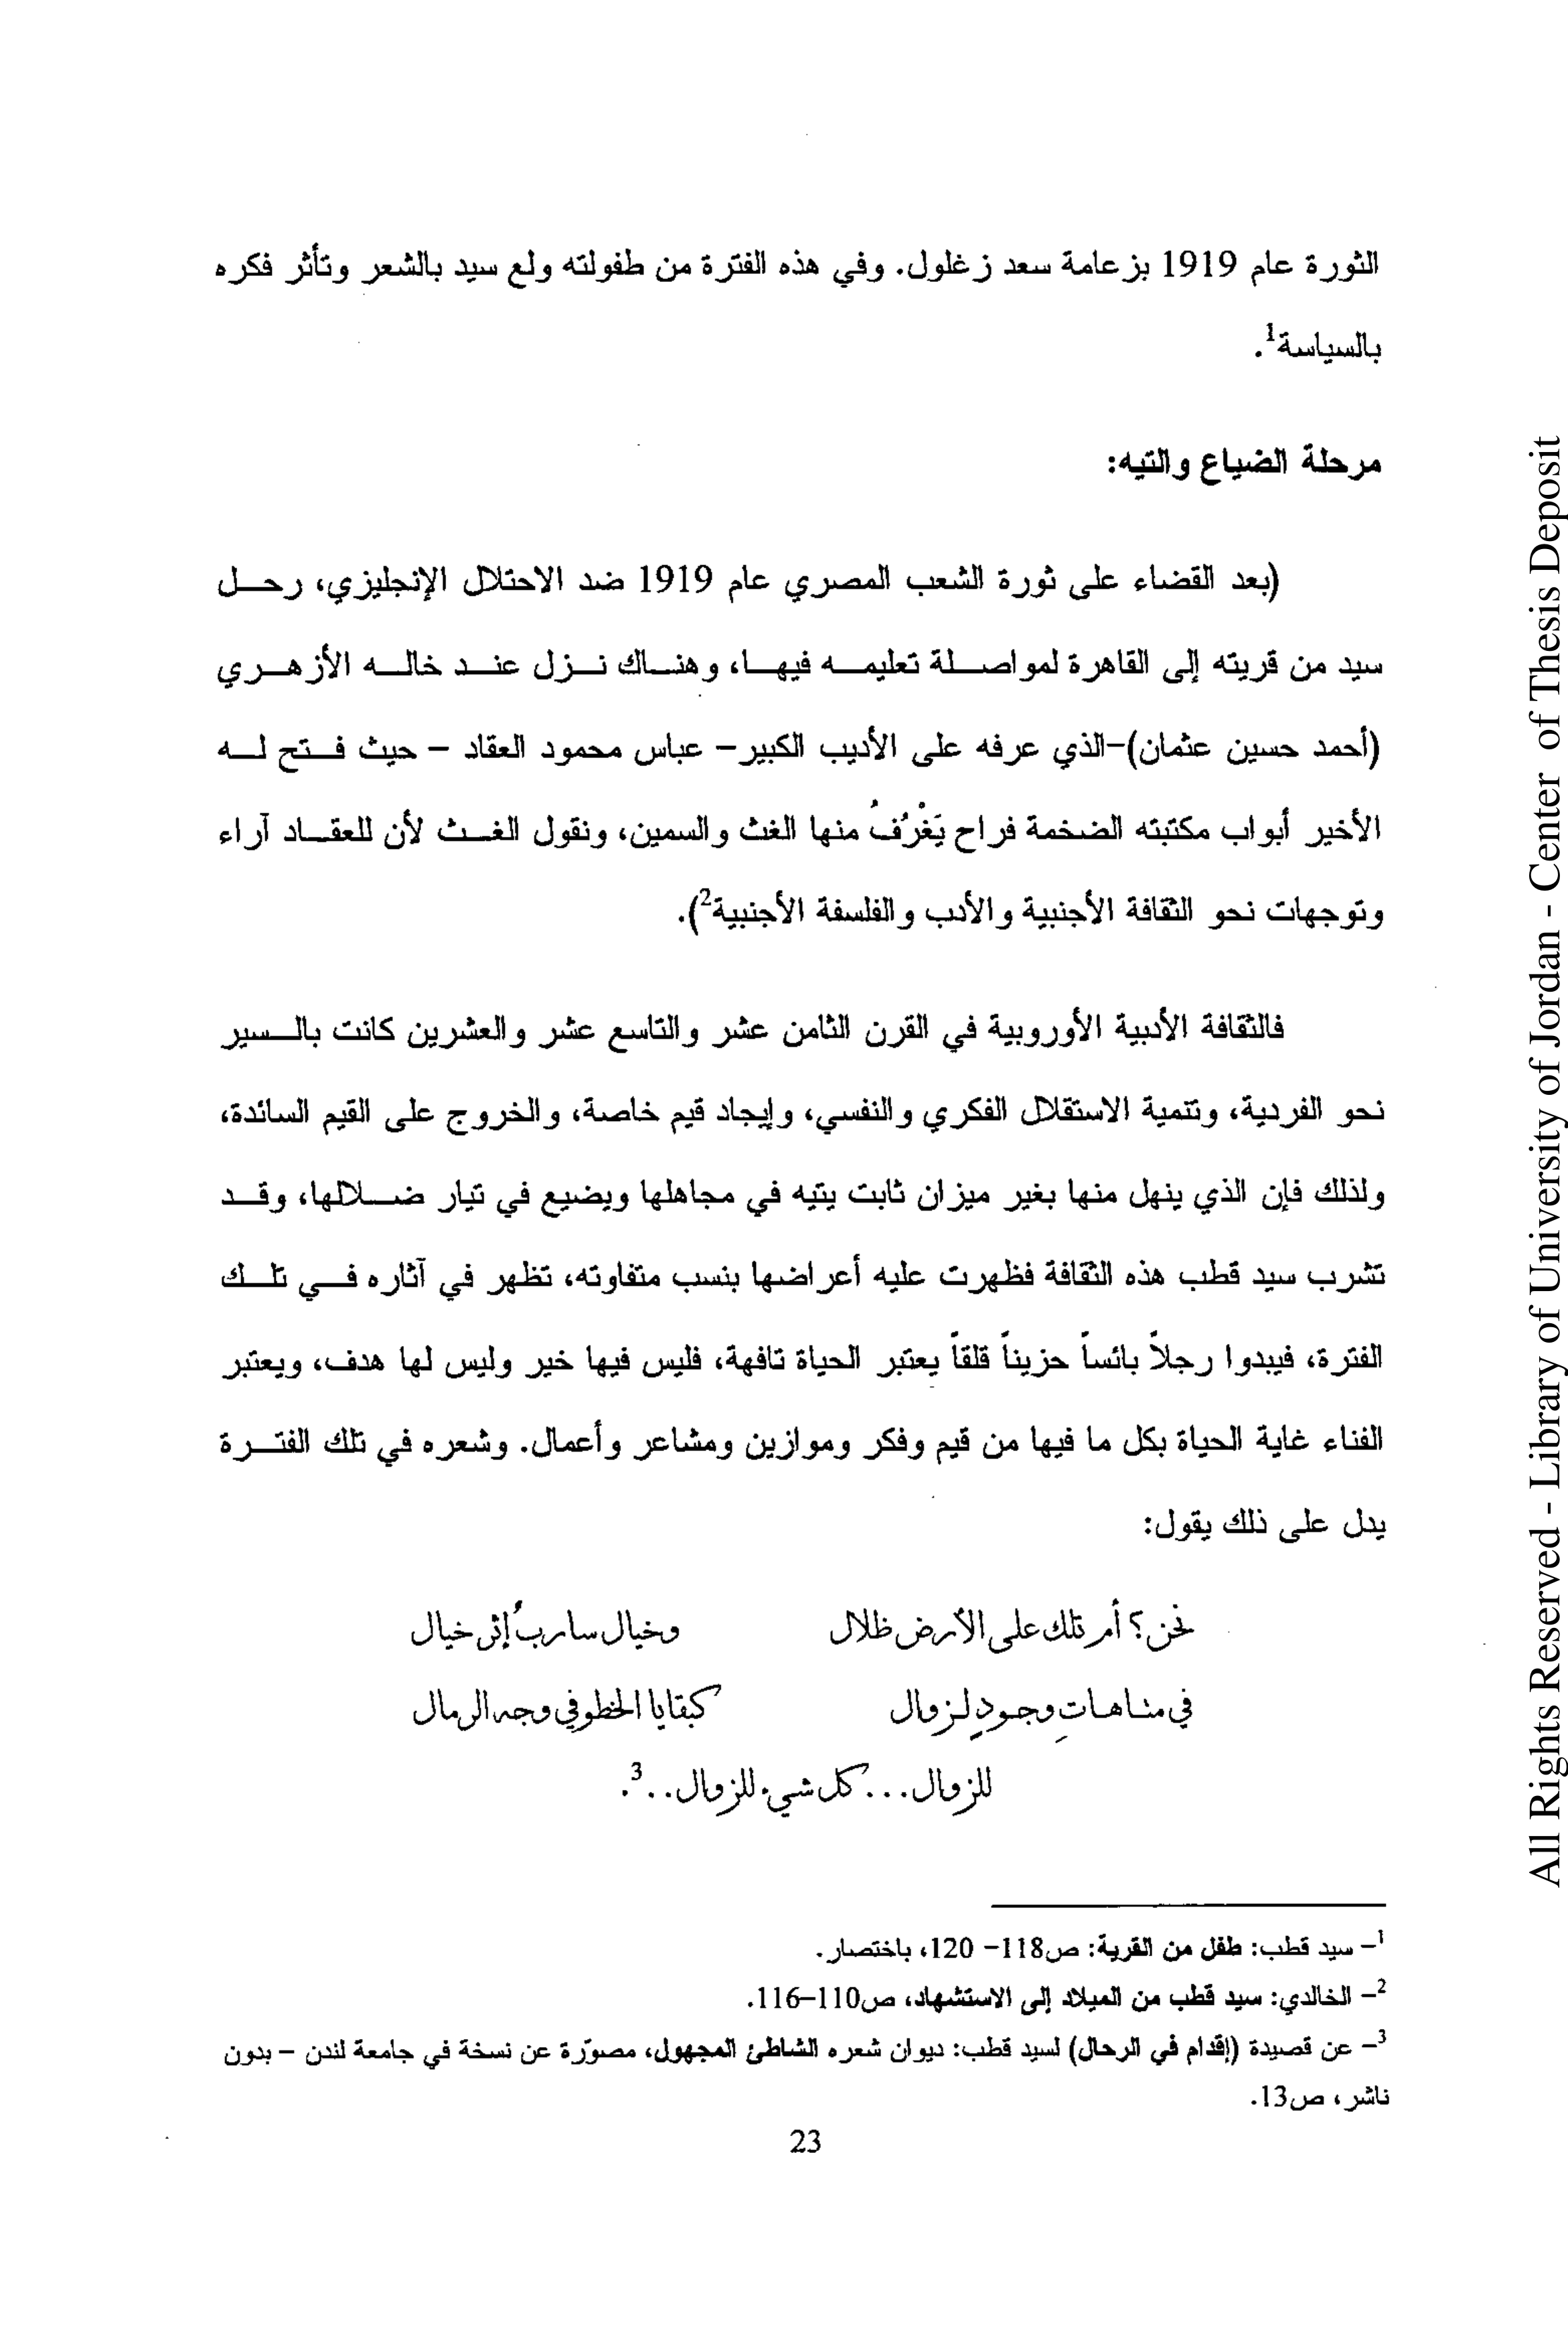 الثورة عام 1919 بزعامة سعد زغلول. وفي هذه الفترة من طفولته ولع سيد بالشعر وتأثر فكره
بالسياسة¹.
مرحلة الضياع والتيه:
(بعد القضاء على ثورة الشعب المصري عام 1919 ضد الاحتلال الإنجليزي، رحل
سيد من قريته إلى القاهرة لمواصلة تعليمه فيها، وهناك نزل عند خاله الأزهري
(أحمد حسين عثمان)-الذي عرفه على الأديب الكبير- عباس محمود العقاد – حيث فتح له
الأخير أبواب مكتبته الضخمة فراح يَغْرُفُ منها الغث والسمين، ونقول الغث لأن للعقاد آراء
وتوجهات نحو الثقافة الأجنبية والأدب والفلسفة الأجنبية²).
فالثقافة الأدبية الأوروبية في القرن الثامن عشر والتاسع عشر والعشرين كانت بالسير
نحو الفردية، وتنمية الاستقلال الفكري والنفسي، وإيجاد قيم خاصة، والخروج على القيم السائدة،
ولذلك فإن الذي ينهل منها بغير ميزان ثابت يتيه في مجاهلها ويضيع في تيار ضلالها، وقد
تشرب سيد قطب هذه الثقافة فظهرت عليه أعراضها بنسب متفاوته، تظهر في آثاره في تلك
الفترة، فيبدوا رجلاً بائساً حزيناً قلقاً يعتبر الحياة تافهة، فليس فيها خير وليس لها هدف، ويعتبر
الفناء غاية الحياة بكل ما فيها من قيم وفكر وموازين ومشاعر وأعمال. وشعره في تلك الفترة
يدل على ذلك يقول:
نحن؟ أم تلك على الأرض ظلال وخيال ساربُ إثر خيال
في متاهاتِ وجودٍ لزوال كبقايا الخطو في وجه الرمال
للزوال... كل شيء للزوال..³.
¹- سيد قطب: طفل من القرية: ص118- 120، باختصار.
²- الخالدي: سيد قطب من الميلاد إلى الاستشهاد، ص110-116.
³- عن قصيدة (إقدام في الرحال) لسيد قطب: ديوان شعره الشاطئ المجهول، مصوّرة عن نسخة في جامعة لندن – بدون
ناشر، ص13.
23
All Rights Reserved - Library of University of Jordan - Center of Thesis Deposit